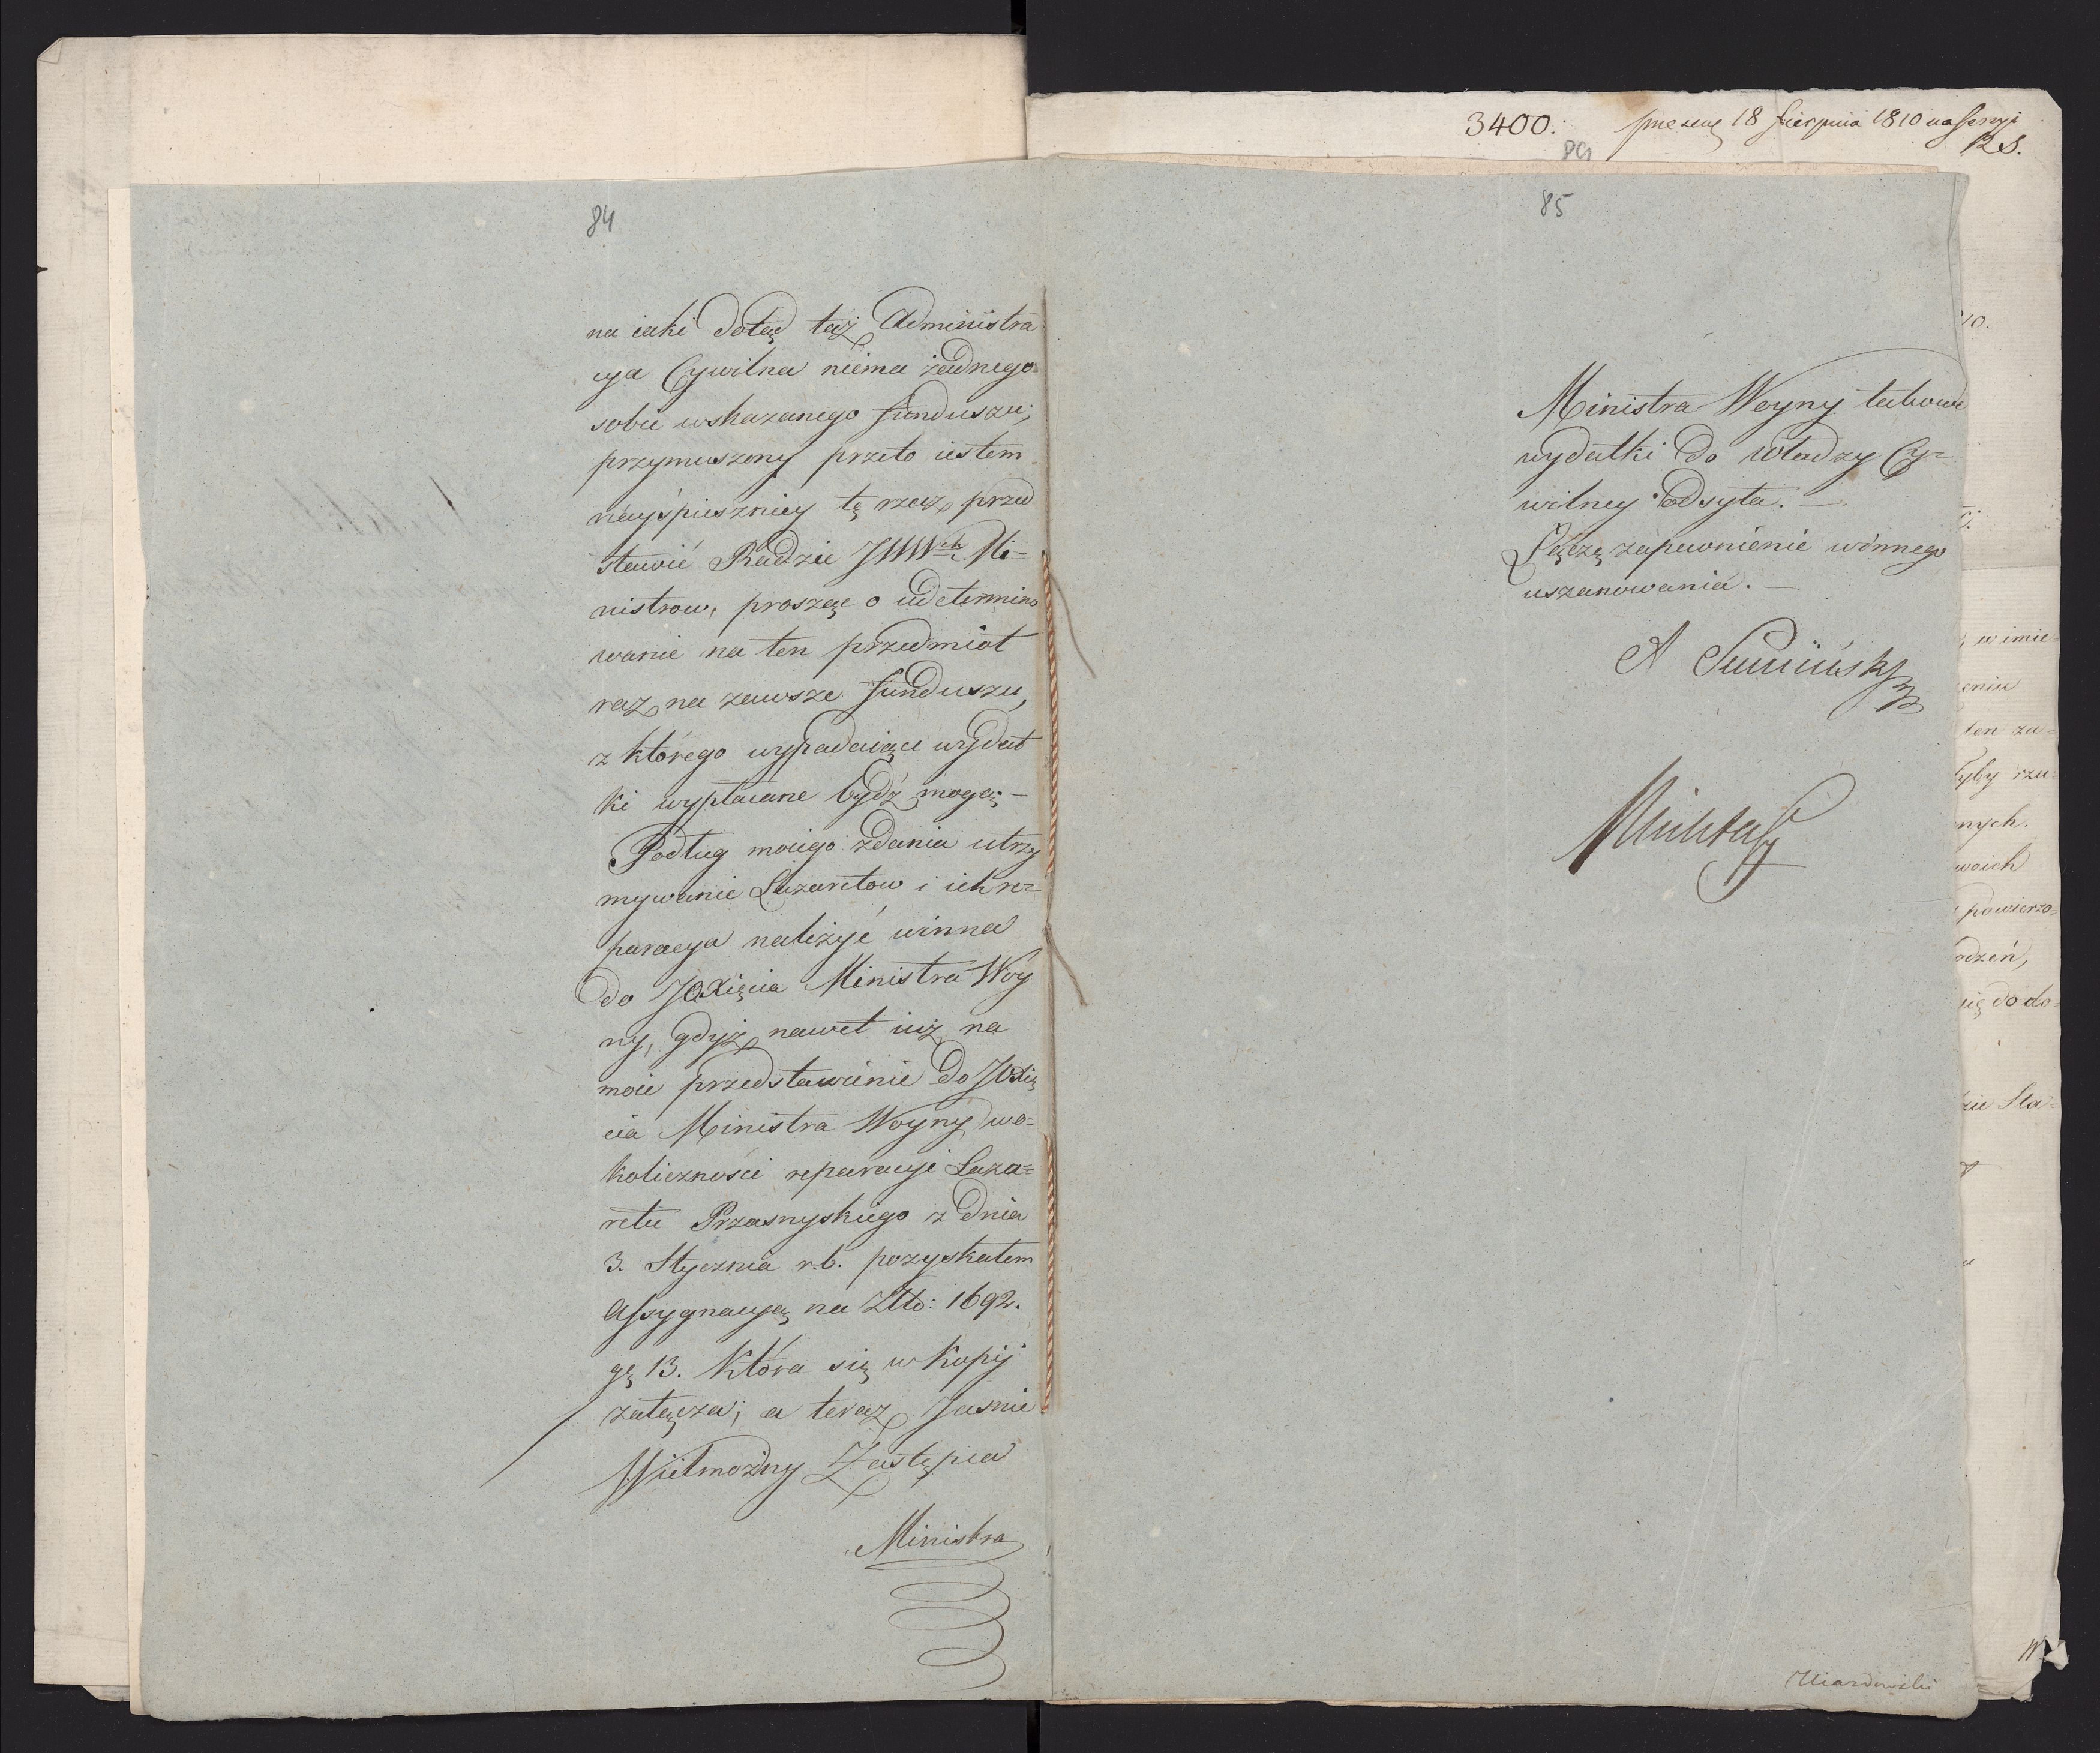 84
na iaki dotąd taż Administra
cya Cywilna niema żadnego
sobie wskazanego funduszu;
przymuszony przeto iestem
nayśpieszniey tę rzecz przed
stawić Radzie JWWch Mi-
nistrow, prosząc o udetermino
wanie na ten przedmiot
raz na zawsze funduszu,
z którego wypadaiące wydat
ki wypłacane bydź mogą. —
Podług moiego zdania utrzy
mywanie Lazaretow i ich re=
paracya należyć winna
do JOXięcia Ministra Woy
ny, gdyż nawet iuż na
moie przedstawienie do JOXię
cia Ministra Woyny wo=
koliczności reparacyi Laza=
retu Przasnyskiego z dnia
3. Stycznia r.b. pozyskałem
Assygnacyą na Złło: 1692.
gę 13. która się w kopij
załącza; a teraz Jasnie
Wielmożny Zastępca
Ministra
3400. 18 Sierpnia 1810 na sessyi
R S.
89
85
Ministra Woyny takowe
wydatki do władzy Cy=
wilney odsyła. —
Łączę zapewnienie winnego
uszanowania. —
A Sumiński
10.
, w imie
eniu
ten za=
łyby rzu=
nych.
woich
powierzo=
odzeń,
się do do=
zie Sta=